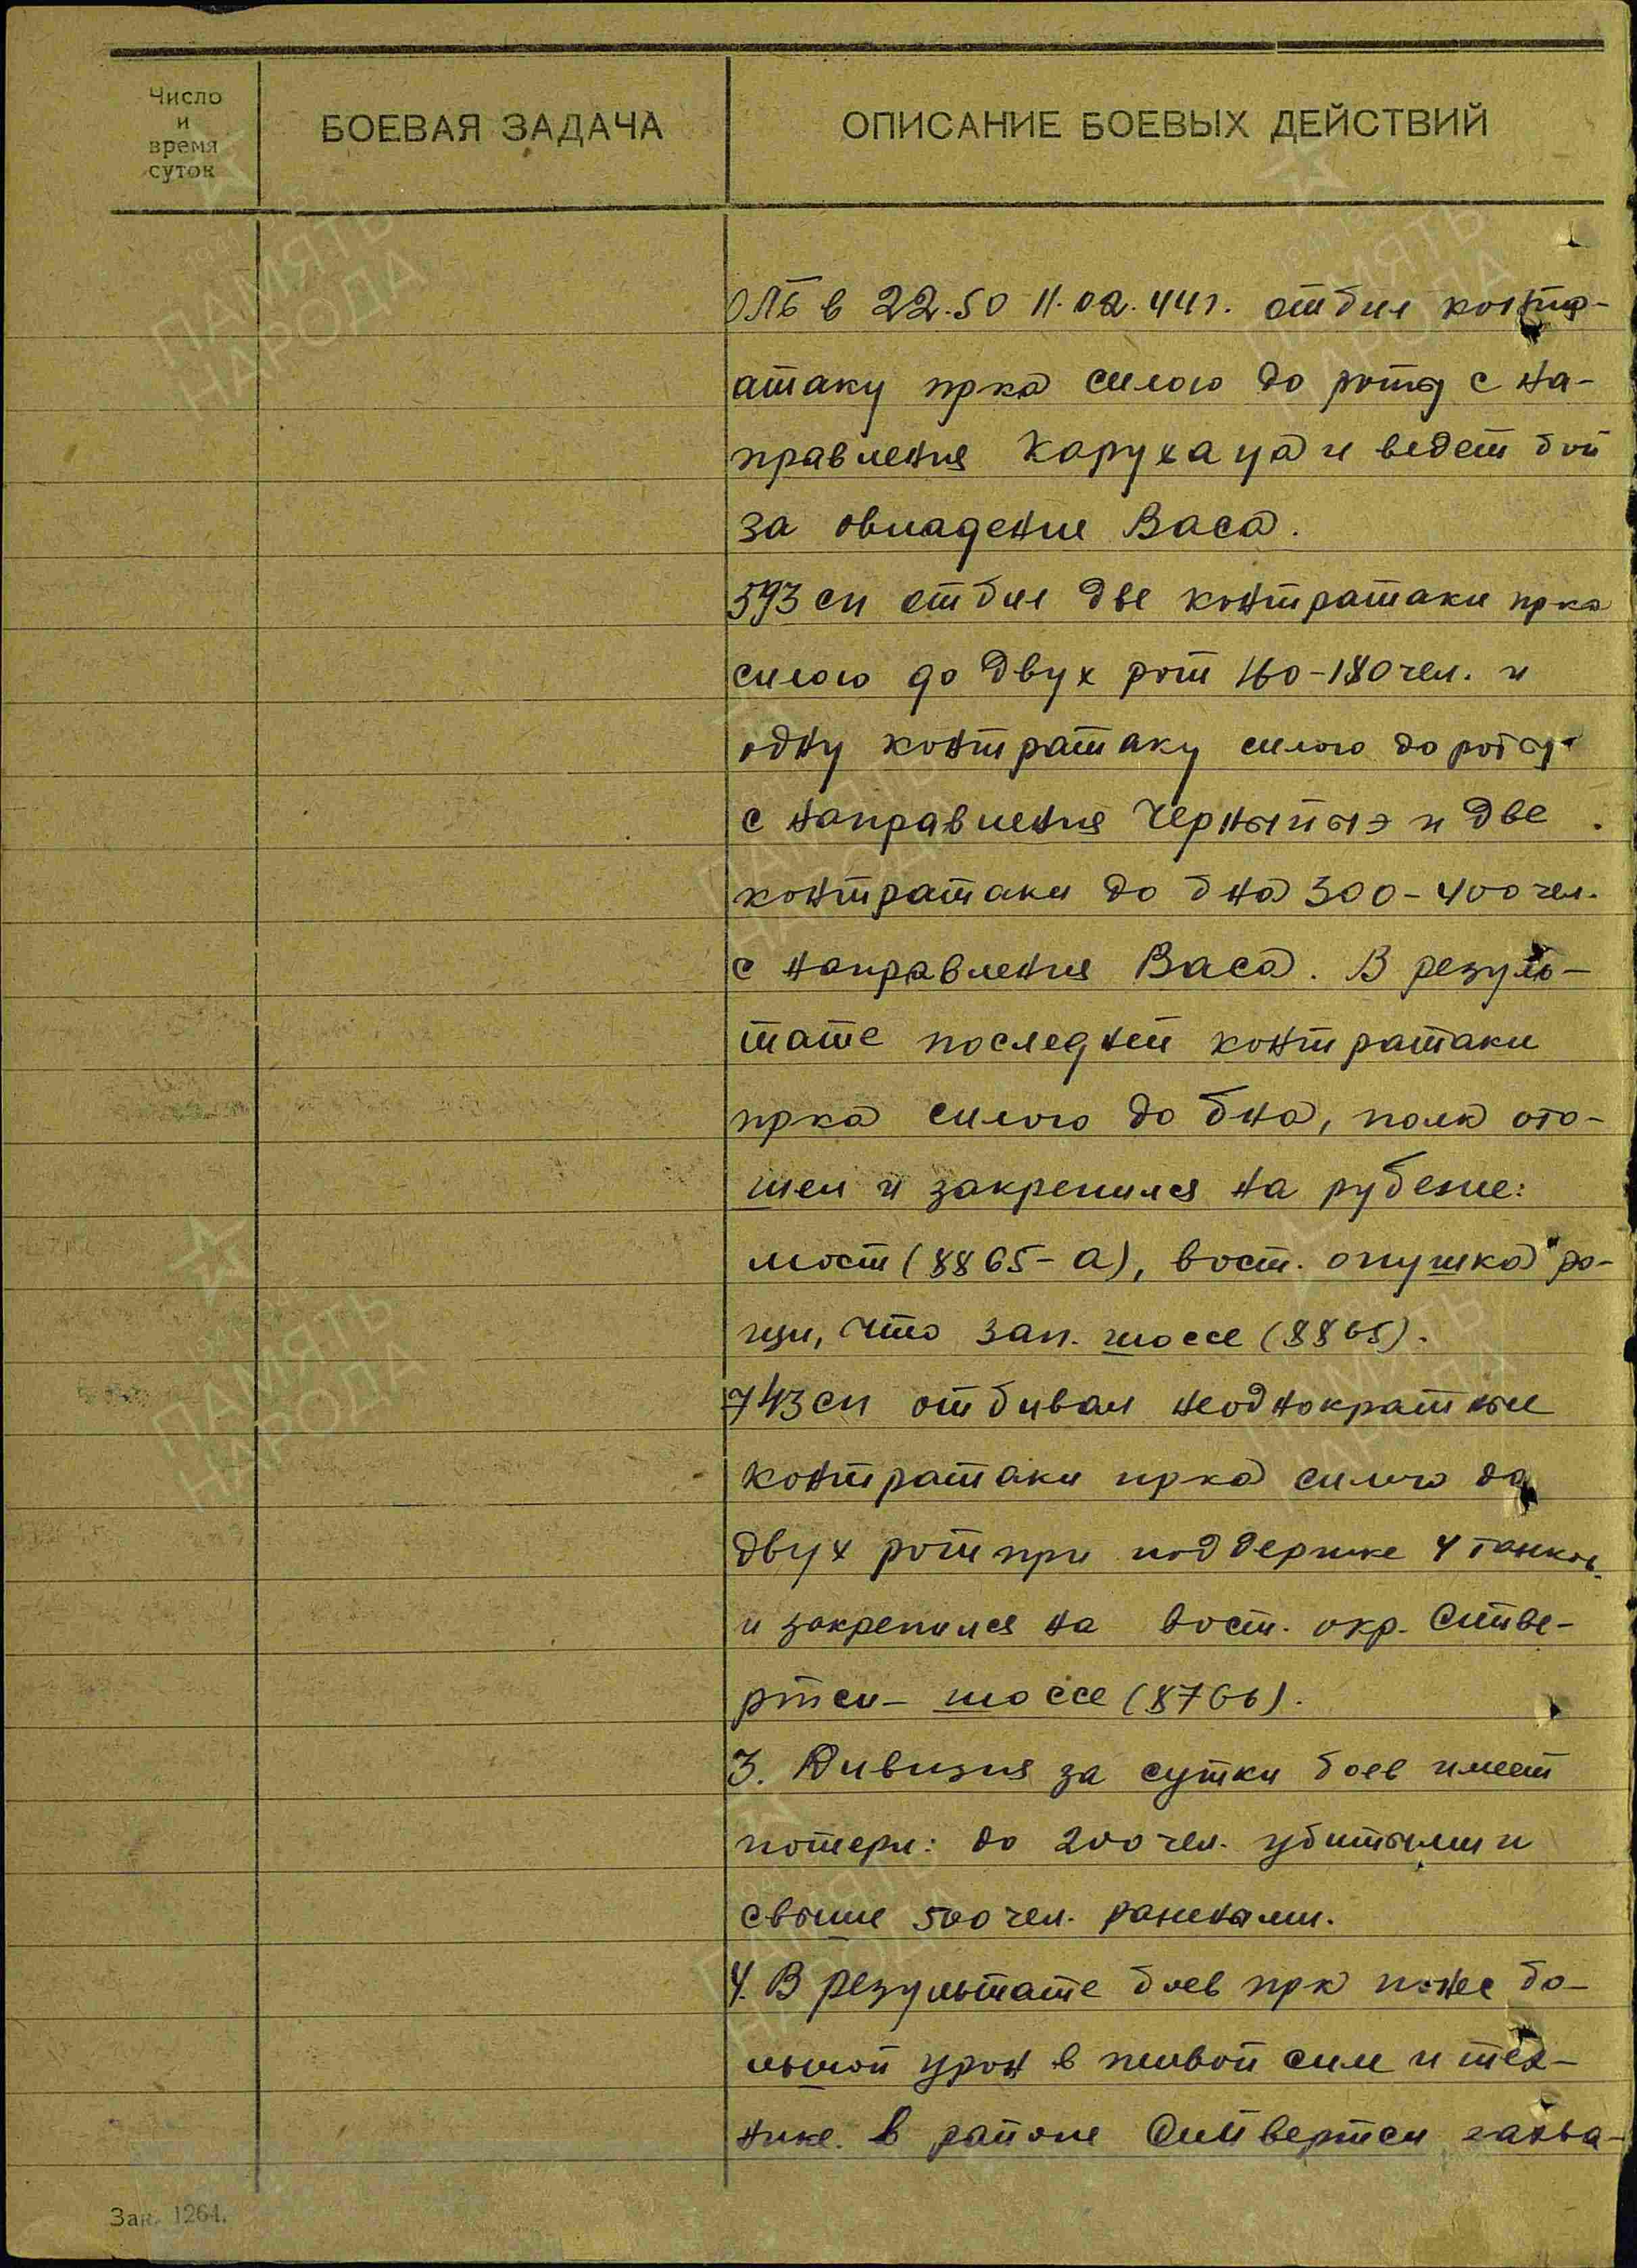 Число
и
время
суток
БОЕВАЯ ЗАДАЧА
ОПИСАНИЕ БОЕВЫХ ДЕЙСТВИЙ
ОЛБ в 22.50 11.02.44г. отбил контр-
атаку пр-ка силою до роты с на-
правления Карухауа и ведет бой
за овладение Васа.
593 сп отбил две контратаки пр-ка
силою до двух рот 160-180 чел. и
одну контратаку силою до роты
с направления Черныйыэ и две
контратаки до б-на 300-400 чел.
с направления Васа. В резуль-
тате последней контратаки
пр-ка силою до б-на, полк ото-
шел и закрепился на рубеже:
мост (8865-а), вост. опушка ро-
щи, что зап. шоссе (8865).
743 сп отбивал неоднократные
контратаки пр-ка силою до
двух рот при поддержке 4 танков
и закрепился на вост. окр. Ситве-
ртси - шоссе (8766).
3. Дивизия за сутки боев имеет
потери: до 200 чел. убитыми и
свыше 500 чел. ранеными.
4. В результате боев пр-к понес бо-
льшой урон в живой силе и тех-
нике. В районе Ситвертси захва-
Зак. 1264.
ПАМЯТЬ
НАРОДА